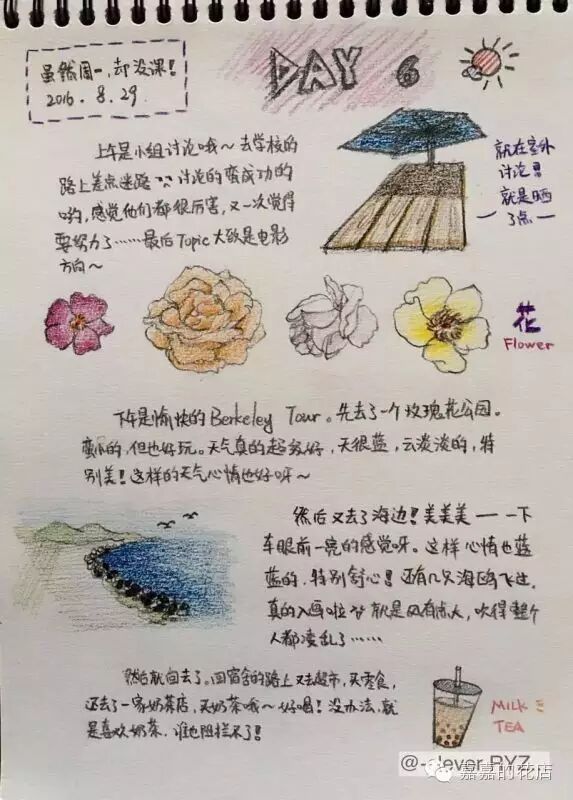 虽然周一,却没课!
2016.8.29.
DAY 6
上午是小组讨论哦~去学校的
路上差点迷路 讨论的蛮成功的
哟,感觉他们都很厉害,又一次觉得
要努力了……最后Topic大致是电影
方向~
就在室外
讨论!!
就是晒
了点
花
Flower
下午是愉快的Berkeley Tour。先去了一个玫瑰花公园。
蛮小的,但也好玩。天气真的超级好,天很蓝,云淡淡的,特
别美!这样的天气心情也好呀~
然后又去了海边!美美美——一下
车眼前一亮的感觉呀。这样心情也蓝
蓝的,特别舒心!还有几只海鸥飞过,
真的入画啦 就是风有点大,吹得整个
人都凌乱了……
然后就回去了。回宿舍的路上又去超市,买零食,
还去了一家奶茶店,买奶茶哦~好喝!没办法,就
是喜欢奶茶,谁也阻拦不了!
MILK
TEA
@-clever RYZ
嘉嘉的花店